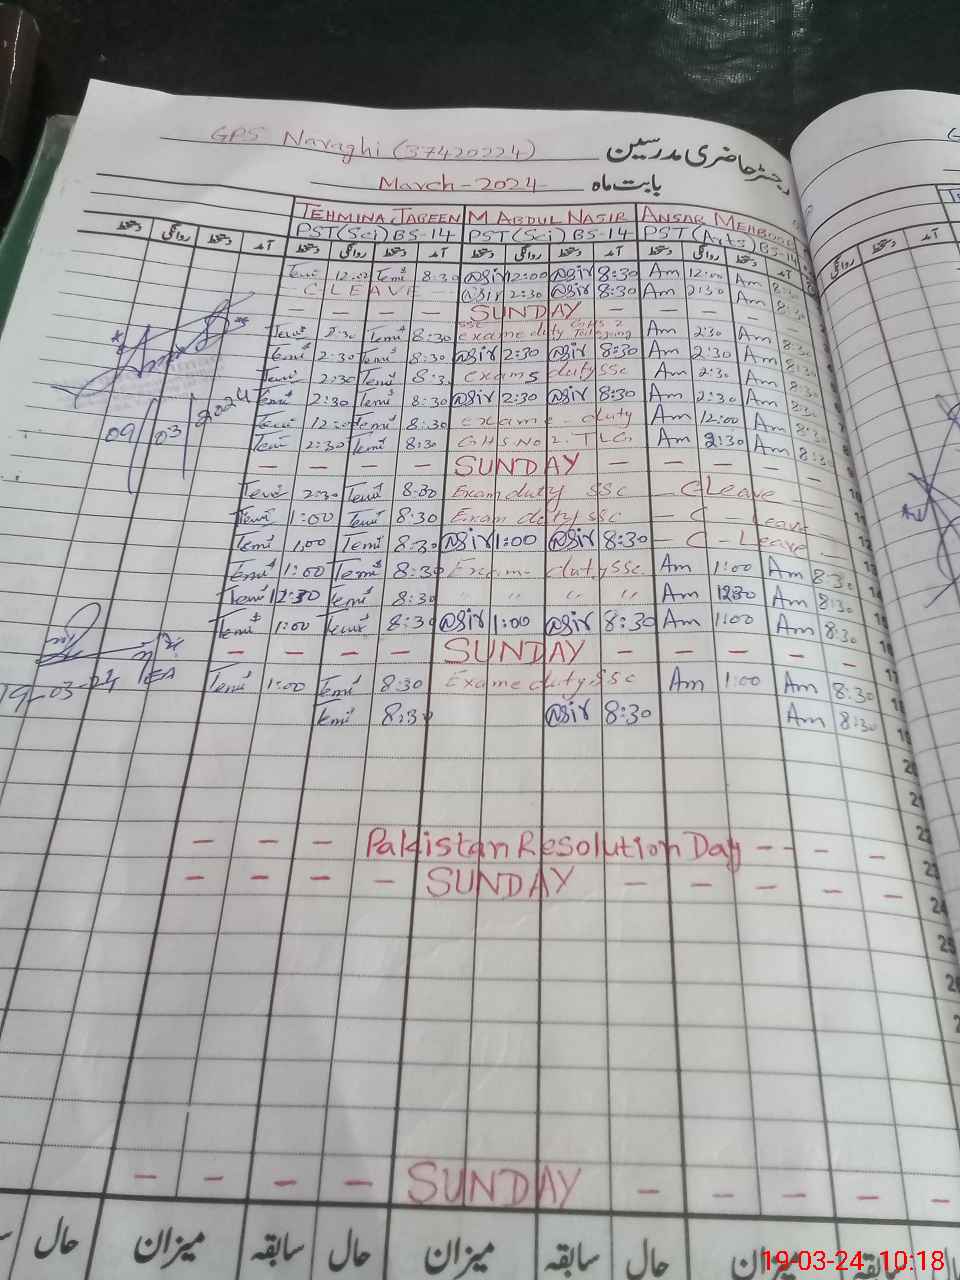 GPS Naraghi (37420224) رجسٹر حاضری مدرسین
March-2024 بابت ماہ
TEHMINA JABEEN M ABDUL NASIR ANSAR MEHBOOB
PST(Sci) BS-14 PST(Sci) BS-14 PST(Arts) BS-14
دستخط روانگی دستخط آمد دستخط روانگی دستخط آمد دستخط روانگی دستخط آمد دستخط روانگی دستخط آمد
Temi 12:00 Temi 8:30 Nasir 12:00 Nasir 8:30 Am 12:00 Am 8:30
C LEAVE Nasir 2:30 Nasir 8:30 Am 2:30 Am 8:30
— — — — SUNDAY — — — —
Temi 2:30 Temi 8:30 SSC exame duty GHS 2 Am 2:30 Am 8:30
Temi 2:30 Temi 8:30 Nasir 2:30 Nasir 8:30 Am 2:30 Am 8:30
Temi 2:30 Temi 8:30 exams duty SSC Am 2:30 Am 8:30
Temi 2:30 Temi 8:30 Nasir 2:30 Nasir 8:30 Am 2:30 Am 8:30
Temi 12:00 Temi 8:30 exame - duty Am 12:00 Am 8:30
Temi 2:30 Temi 8:30 GHS No 2. TLG Am 2:30 Am 8:30
09/03/2024
— — — — SUNDAY — — — — 10
Temi 2:30 Temi 8:30 Exam duty SSC — C Leave 11
Temi 1:00 Temi 8:30 Exam duty SSC — C - Leave 12
Temi 1:00 Temi 8:30 Nasir 1:00 Nasir 8:30 — C - Leave — 13
Temi 1:00 Temi 8:30 Exam duty SSC Am 1:00 Am 8:30 14
Temi 12:30 Temi 8:30 " " " " Am 12:30 Am 8:30
Temi 1:00 Temi 8:30 Nasir 1:00 Nasir 8:30 Am 1:00 Am 8:30 16
— — — — SUNDAY — — — — 17
19-03-24 Temi 1:00 Temi 8:30 Exame duty SSC Am 1:00 Am 8:30 18
Temi 8:30 Nasir 8:30 Am 8:30 19
20
21
22
— — — Pakistan Resolution Day — — — — 23
— — — — SUNDAY — — — — 24
25
26
— — — — SUNDAY — — — —
حال میزان سابقہ حال میزان سابقہ حال میزان سابقہ
19-03-24 10:18